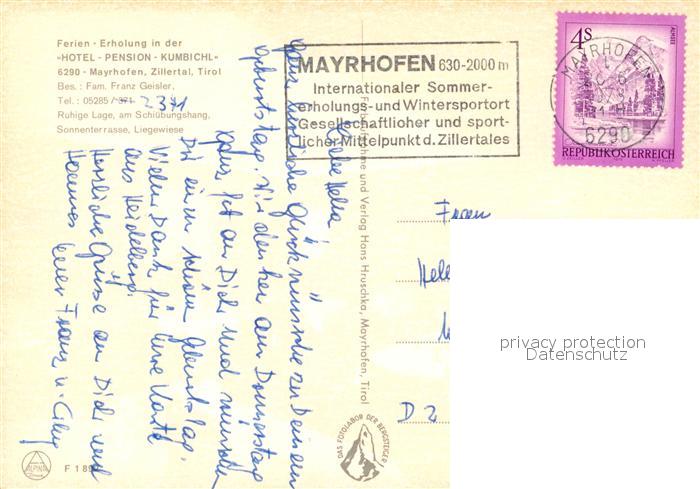 Ferien - Erholung in der
»HOTEL - PENSION - KUMBICHL«
6290 - Mayrhofen, Zillertal, Tirol
Bes.: Fam. Franz Geisler,
Tel.: 05285/371 2371
Ruhige Lage, am Schiübungshang,
Sonnenterrasse, Liegewiese
MAYRHOFEN 630-2000 m
Internationaler Sommer-
erholungs- und Wintersportort
Gesellschaftlicher und sport-
licher Mittelpunkt d. Zillertales
MAYRHOFEN
6290
4S
ALMSEE
REPUBLIK ÖSTERREICH
Liebe Helea
Ganz herzliche Glückwünsche zu Deinem
Geburtstag. Wir denken am Donnerstag
ganz fest an Dich und wünschen
Dir einen schönen Geburtstag.
Vielen Dank für Eure Karte
aus Heidelberg.
Herzliche Grüsse an Dich und
Hannes Euer Franz u. Cilly
Verlag Hans Hruschka, Mayrhofen, Tirol
Hele
D 2
DAS FOTOLABOR DER BERGSTEIGER
ALPINA
F 189
privacy protection
Datenschutz